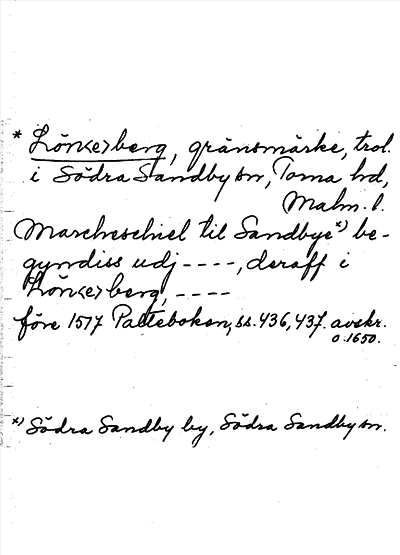 * Lön<e>berg, gränsmärke, trol.
i Södra Sandby sn, Torna hd,
Malm. l.
Marcheschiel til Sandbye*) be-
gyndiss udj ----, deraff i
Lön<e>berg, ----
före 1517 Palteboken, ss. 436, 437. avskr.
o. 1650.
*) Södra Sandby by, Södra Sandby sn.